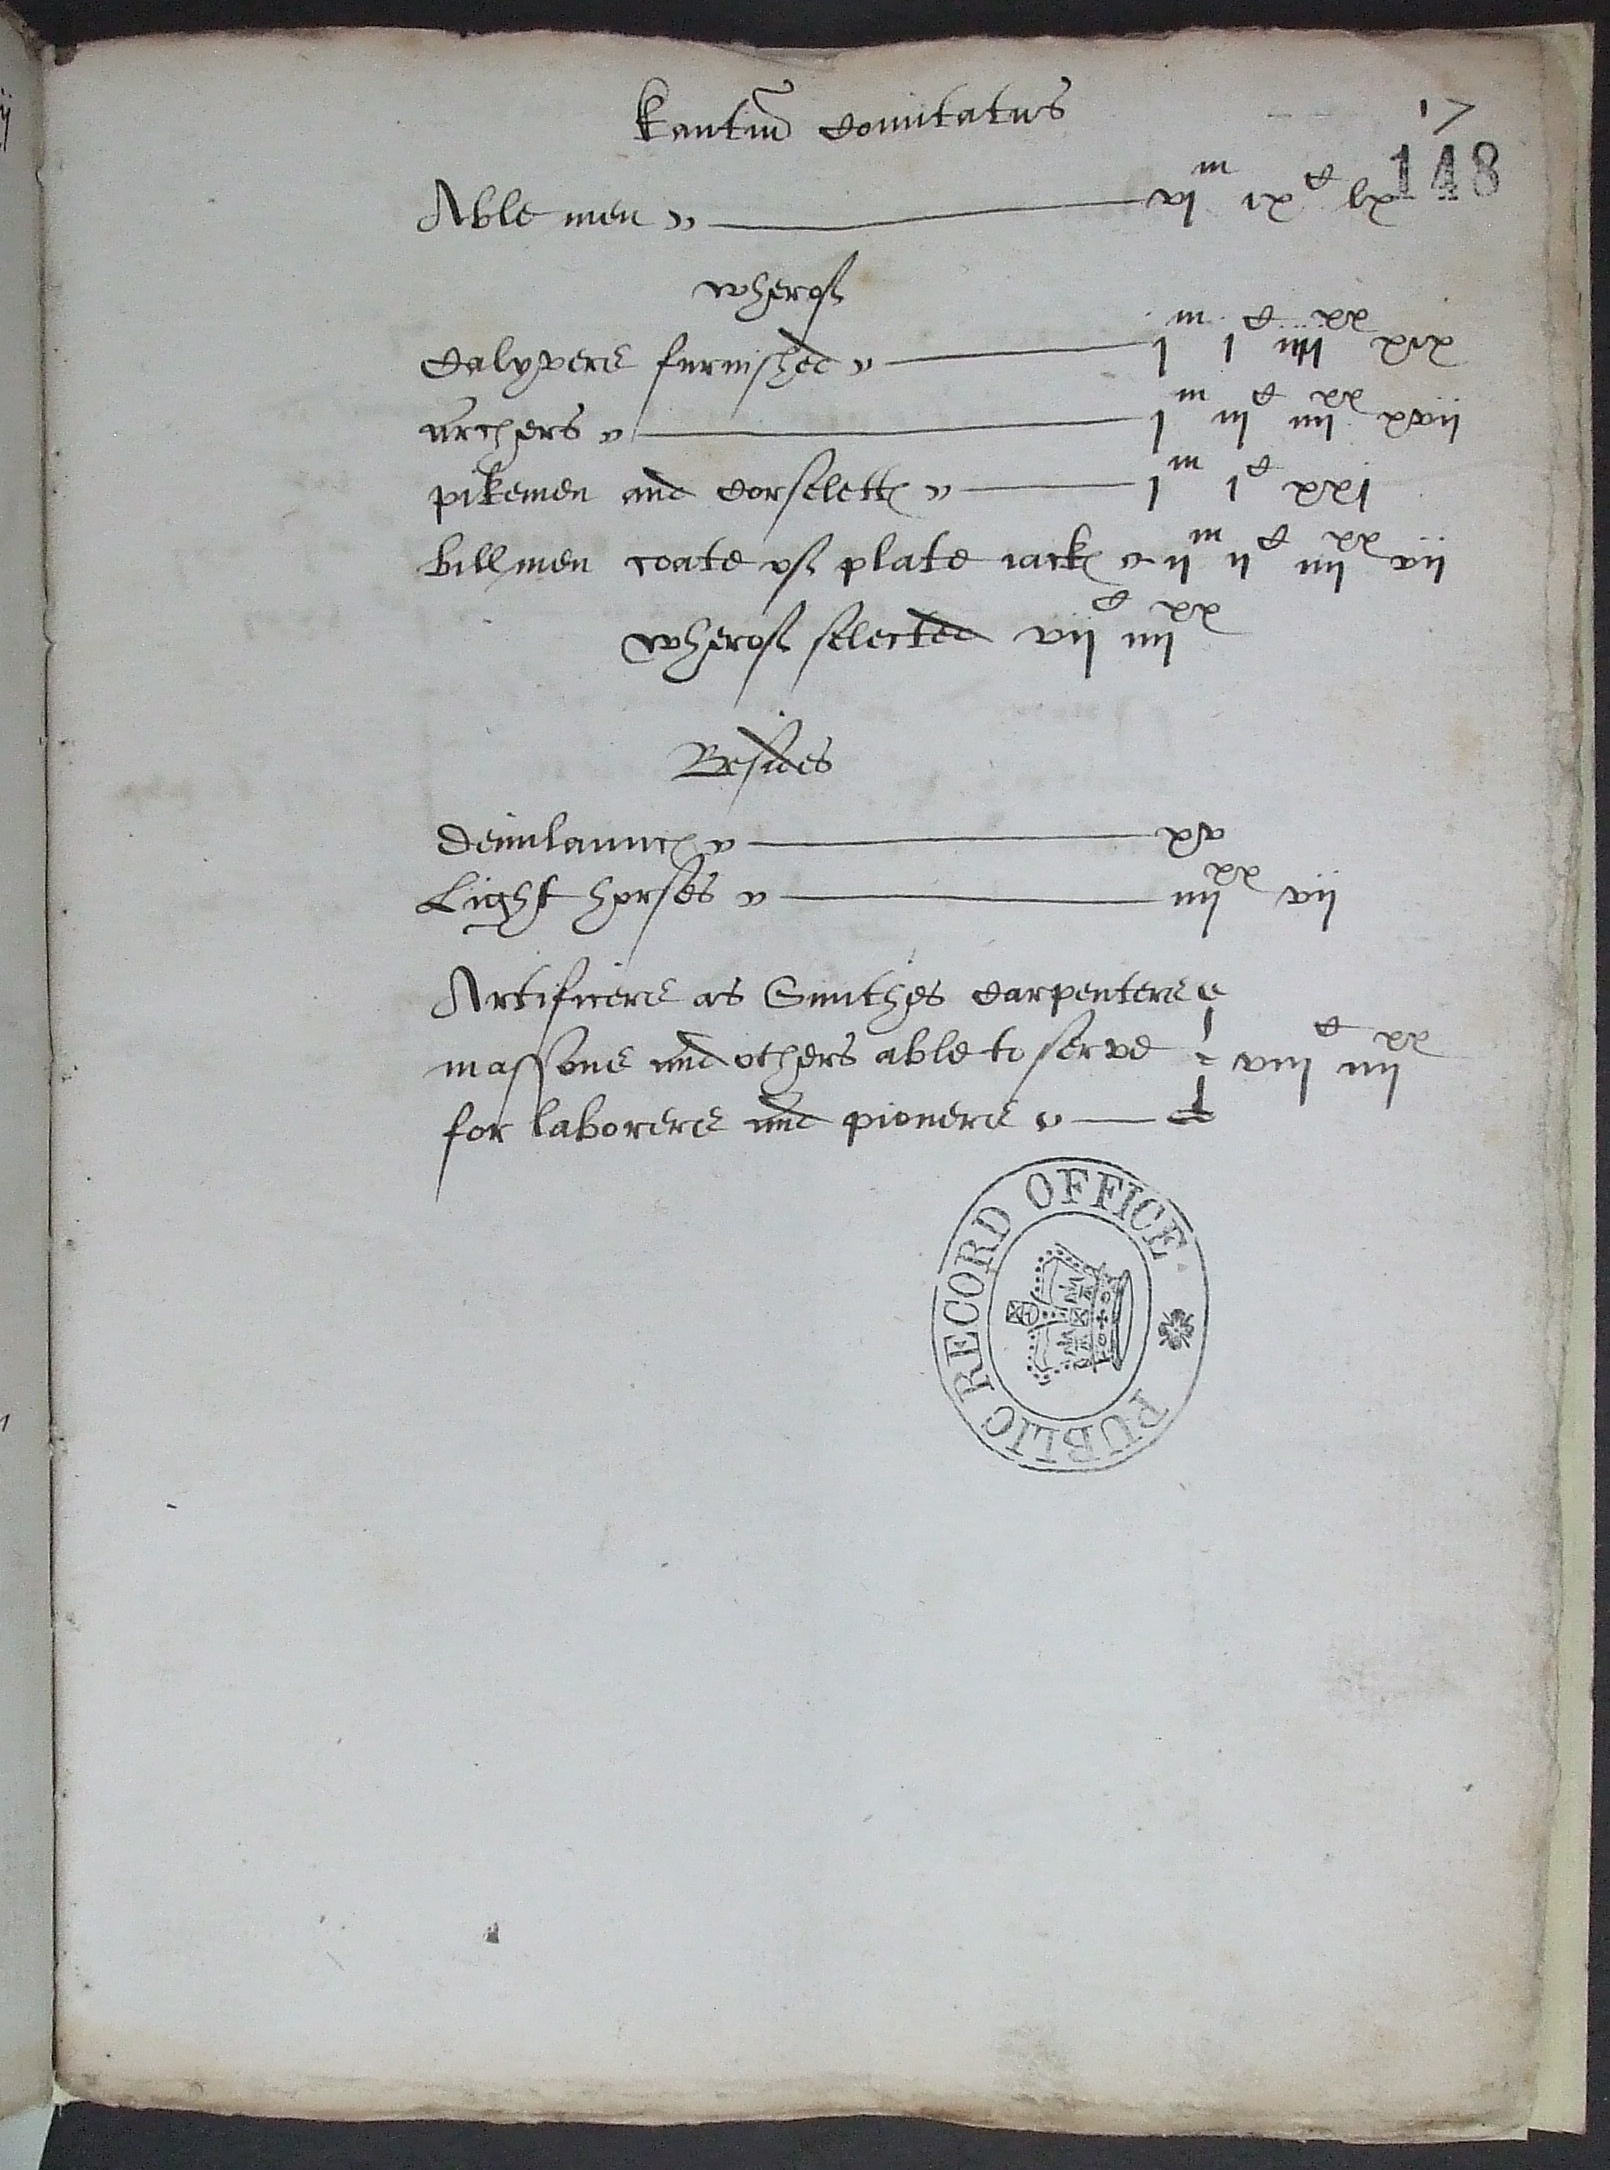 17
Kantiũ Comitatus
148
Able men — vjᵐ ixᶜ lx
wherof
Calyvers furnished — jᵐ jᶜ iiijˣˣ xix
Archers — jᵐ iijᶜ iiijˣˣ xvij
pikemen and Corseletts — jᵐ jᶜ xxj
Billmen coate of plate iacks ijᵐ ijᶜ iiijˣˣ vij
wherof selected vijᶜ iiijˣˣ
Besides
Demilaunces — xv
Light horses — iiijˣˣ vij
Artificers as Smithes Carpenters
massons and others able to serve viijᶜ iiijˣˣ
for laborers and pioners —
PUBLIC RECORD OFFICE